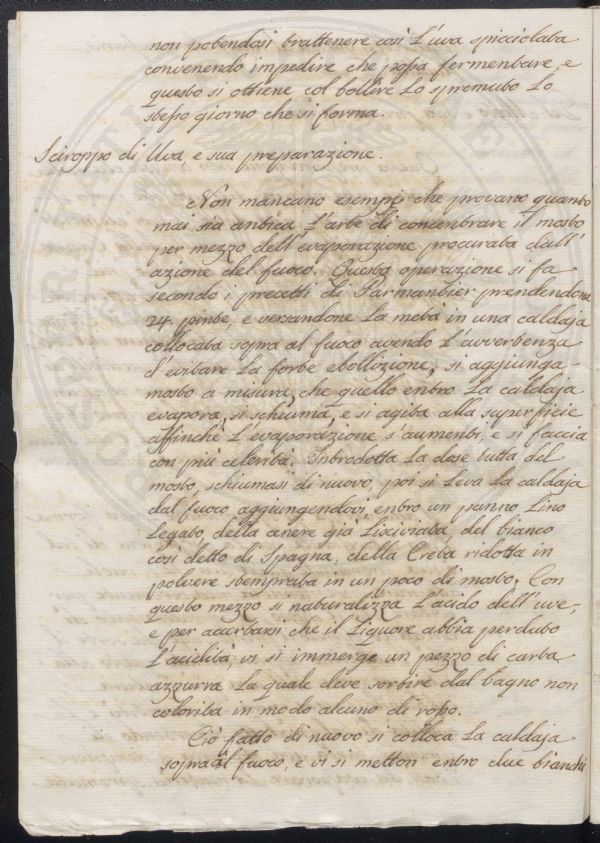 non potendosi trattenere così l'uva spicciolata
convenendo impedire che possa fermentare, e
questo si ottiene col bollire lo spremuto lo
stesso giorno che si forma.
Sciroppo di Uva, e sua preparazione.
Non mancano esempj che provano quanto
mai sia antica l'arte di concentrare il mosto
per mezzo dell'evaporazione procurata dall'
azione del fuoco. Questa operazione si fa
secondo i precetti di Parmantier prendendone
24. pinte, e versandone la metà in una caldaja
collocata sopra al fuoco avendo l'avvertenza
d'evitare la forte ebollizione, si aggiunga-
mosto a misura, che quello entro la caldaja
evapora, si schiuma, e si agita alla superficie
affinchè l'evaporazione s'aumenti, e si faccia
con più celerità. Introdotta la dose tutta del
mosto, schiumasi di nuovo, poi si leva la caldaja
dal fuoco aggiungendovi entro un panno lino
legato, della cenere già lisciviata, del bianco
così detto di Spagna, della Creta ridotta in
polvere stemprata in un poco di mosto; Con
questo mezzo si naturalizza l'acido dell'uve;
e per accertarsi che il liquore abbia perduto
l'acidità, vi si immerge un pezzo di carta
azzurra la quale deve sortire dal bagno non
colorita in modo alcuno di rosso.
Ciò fatto di nuovo si colloca la caldaja
sopra al fuoco, e vi si metton entro due bianchi